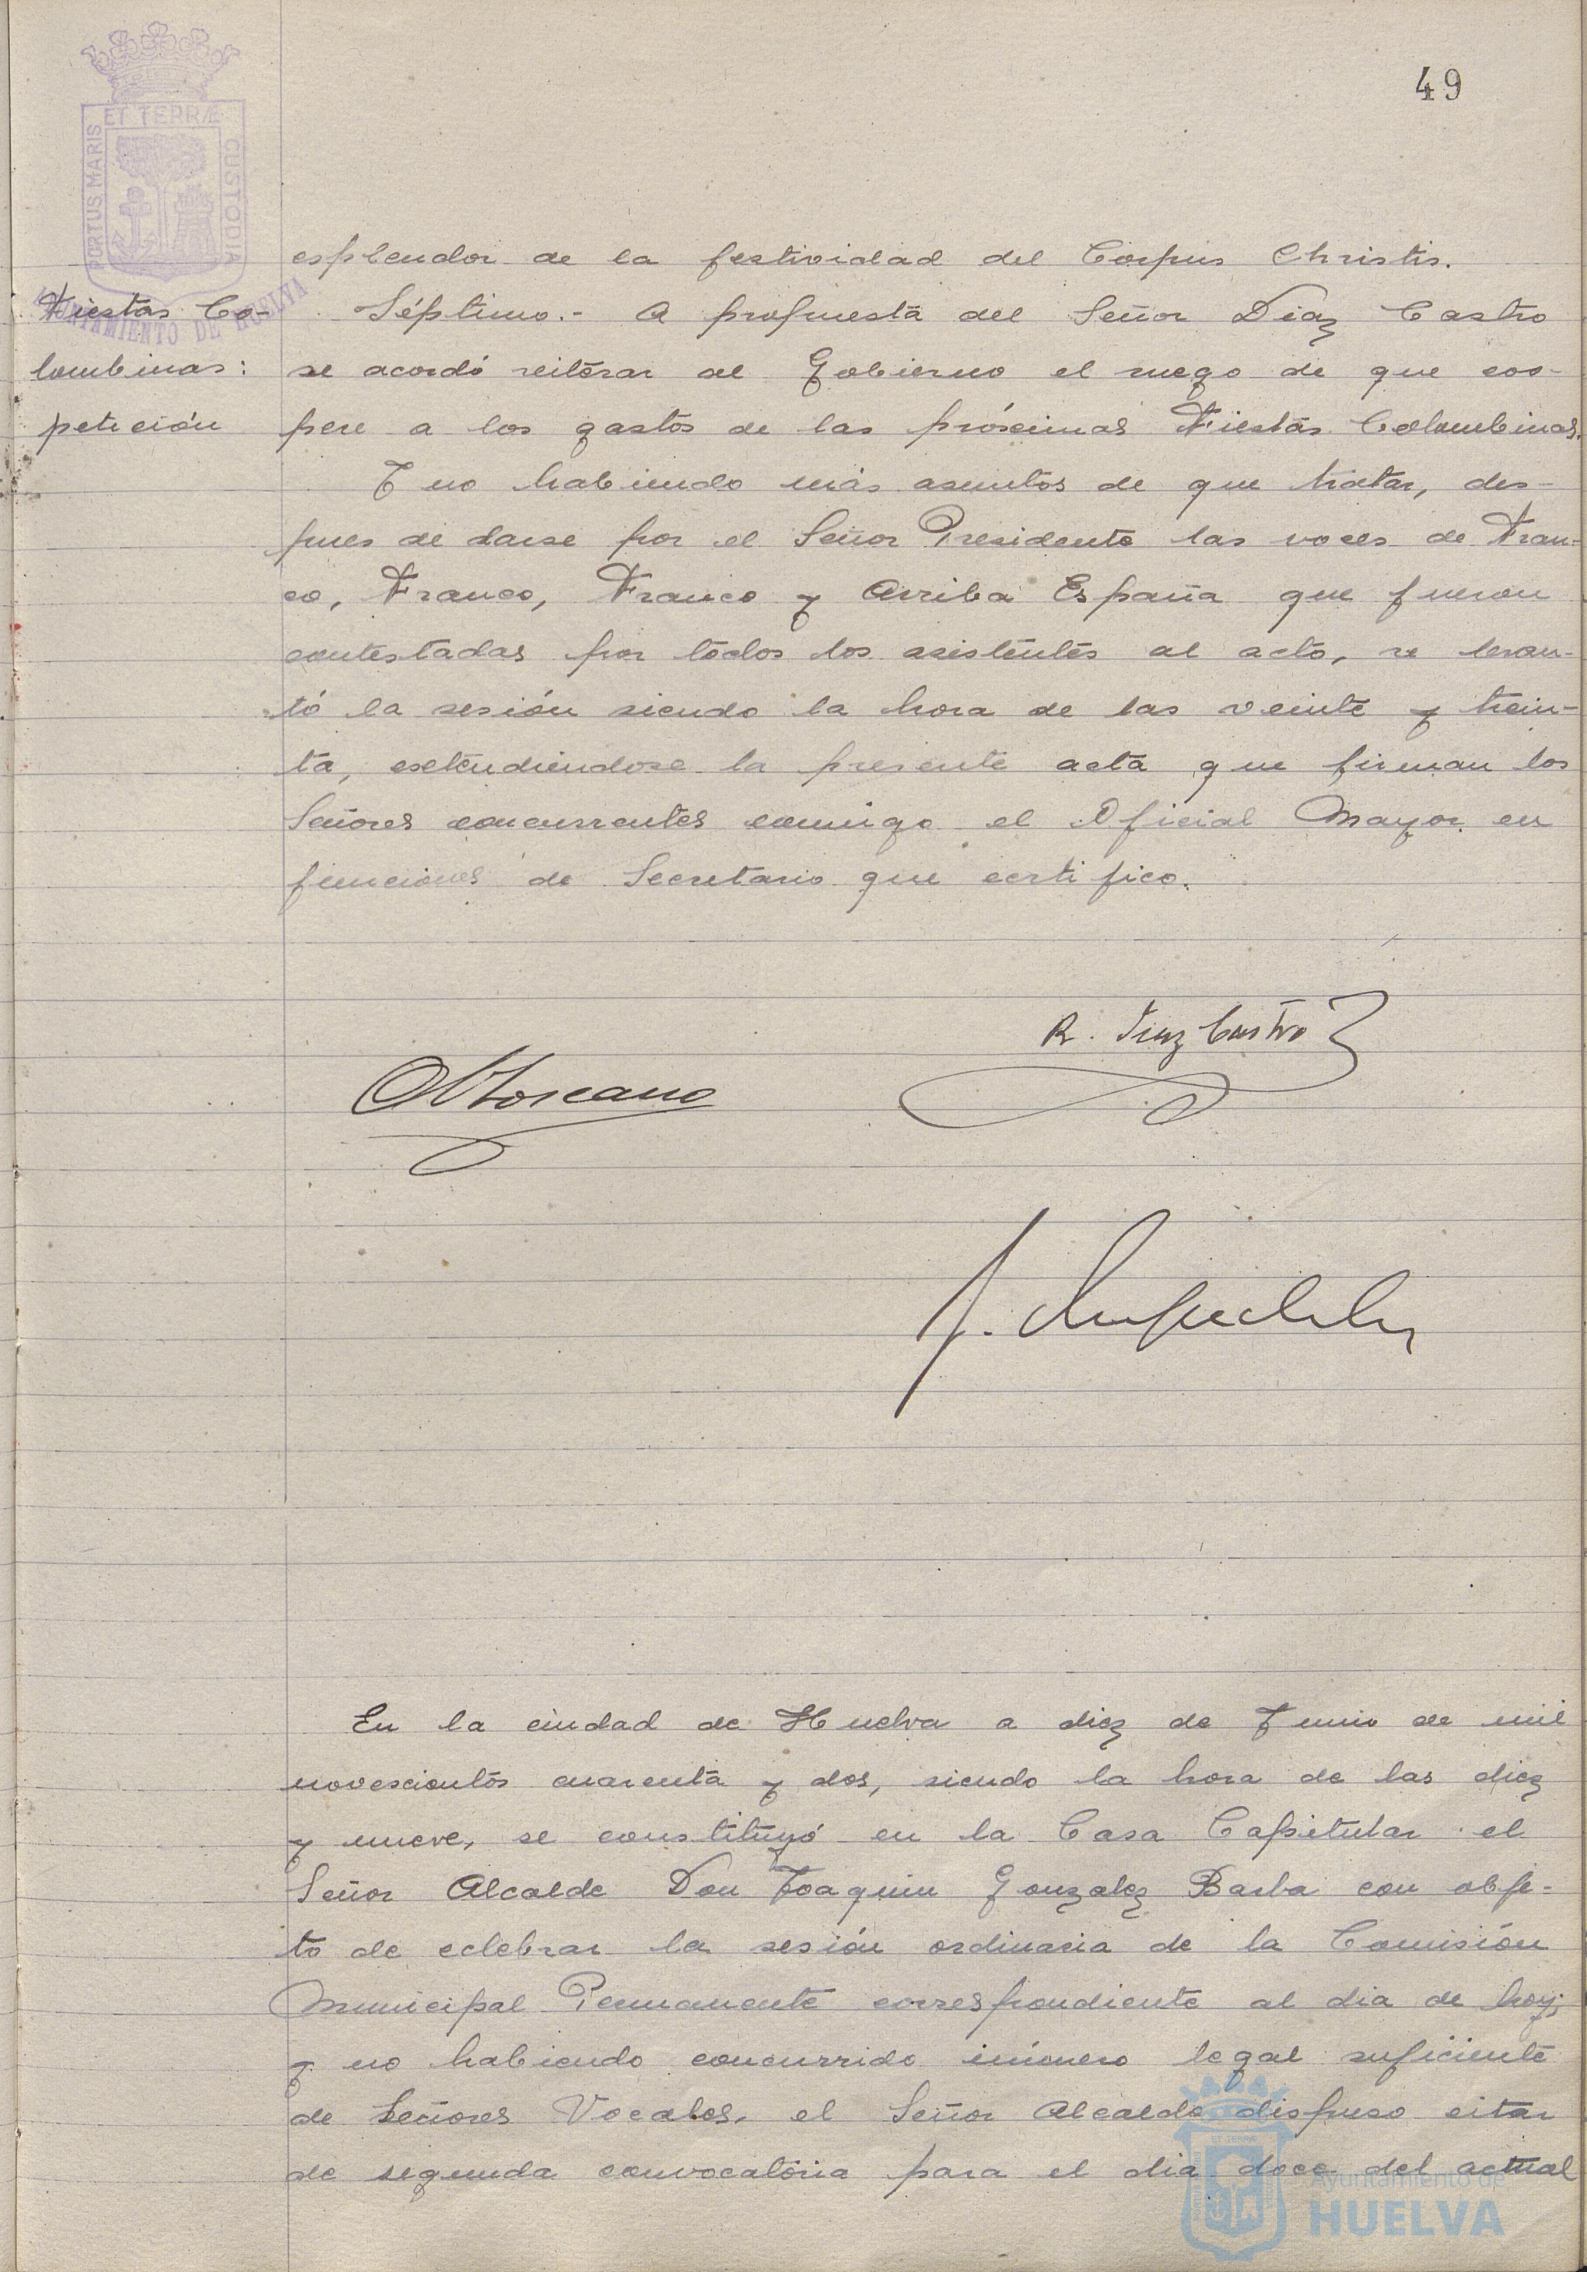 49
PORTUS MARIS ET TERRÆ CUSTODIA
AYUNTAMIENTO DE HUELVA
esplendor de la festividad del Corpus Christis.
Fiestas Co-
lombinas:
petición
Séptimo.- A propuesta del Señor Diaz Castro
se acordó reiterar al Gobierno el ruego de que coo-
pere a los gastos de las próximas Fiestas Colombinas.
Y no habiendo más asuntos de que tratar, des-
pues de darse por el Señor Presidente las voces de Fran-
co, Franco, Franco y Arriba España que fueron
contestadas por todos los asistentes al acto, se levan-
tó la sesión siendo la hora de las veinte y trein-
ta, extendiendose la presente acta que firman los
Señores concurrentes conmigo el Oficial Mayor en
funciones de Secretario que certifico.
R. Diaz Castro
Toscano
En la ciudad de Huelva a diez de Junio de mil
novescientos cuarenta y dos, siendo la hora de las diez
y nueve, se constituyó en la Casa Capitular el
Señor Alcalde Don Joaquin Gonzalez Barba con obje-
to de celebrar la sesión ordinaria de la Comisión
Municipal Permanente correspondiente al dia de hoy;
y no habiendo concurrido número legal suficiente
de Señores Vocales, el Señor Alcalde dispuso citar
de segunda convocatoria para el dia doce del actual
Ayuntamiento de
HUELVA